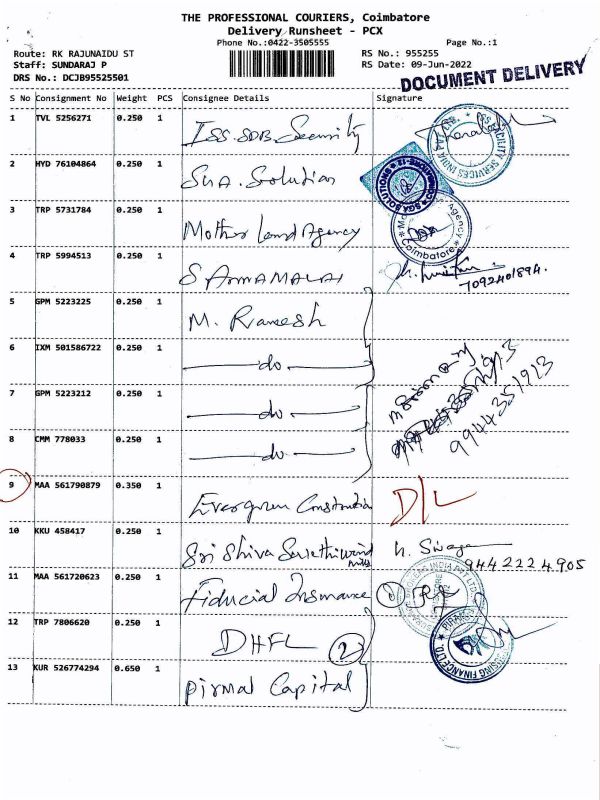 THE PROFESSIONAL COURIERS, Coimbatore
Delivery Runsheet - PCX
Phone No.:0422-3505555 Page No.:1
Route: RK RAJUNAIDU ST RS No.: 955255
Staff: SUNDARAJ P RS Date: 09-Jun-2022
DRS No.: DCJB95525501 DOCUMENT DELIVERY
S No Consignment No Weight PCS Consignee Details Signature
1 TVL 5256271 0.250 1 ISS.SDB.Security
2 HYD 76104864 0.250 1 SGA. Solution
SGA SOLUTIONS
3 TRP 5731784 0.250 1 Mother Land Agency
Coimbatore
4 TRP 5994513 0.250 1 S ANNAMALAI
7092401894.
5 GPM 5223225 0.250 1 M. Ramesh
6 IXM 501586722 0.250 1 do
7 GPM 5223212 0.250 1 do
9944351913
8 CMM 778033 0.250 1 do
9 MAA 561790879 0.350 1 Evergreen Construction D/L
10 KKU 458417 0.250 1 Sri Shiva 
9442224905
11 MAA 561720623 0.250 1 Fiducial Insurance 1
12 TRP 7806620 0.250 1 DHFL 2
13 KUR 526774294 0.650 1 Pirmal Capital